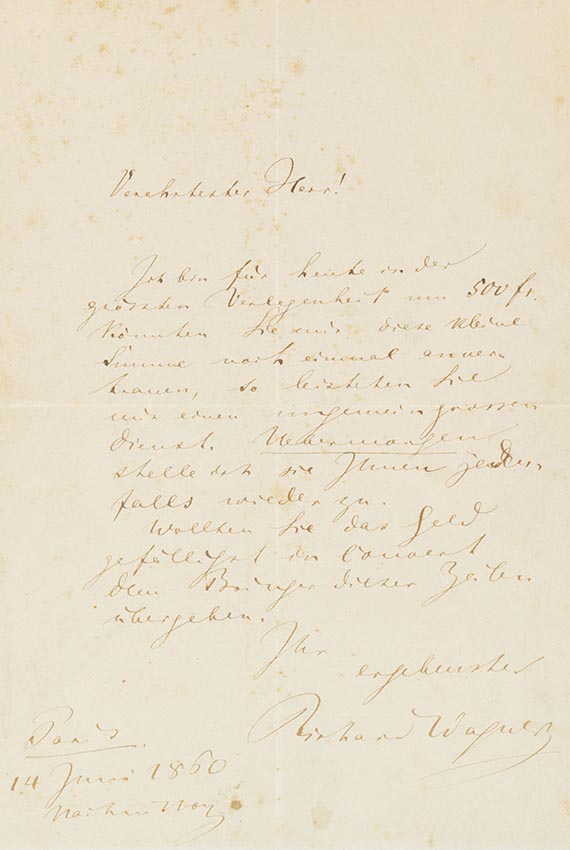 Verehrtester Herr!
Ich bin für heute in der
grössten Verlegenheit um 500 fr.
Könnten Sie mir diese kleine
Summe noch einmal anver-
trauen, so leisteten Sie
mir einen ungemein grossen
Dienst. Uebermorgen
stelle ich sie Ihnen jeden-
falls wieder zu.
Wollten Sie das Geld
gefälligst in Couvert
dem Bringer dieser Zeilen
übergeben.
Ihr
ergebenster
Richard Wagner
Paris.
14 Juni 1860